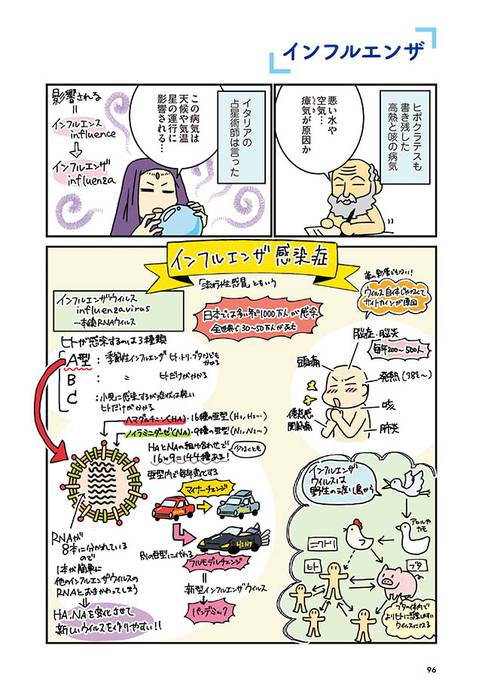 インフルエンザ
ヒポクラテスも
書き残した
高熱と咳の病気
悪い水や
空気…
瘴気が原因か
イタリアの
占星術師は言った
この病気は
天候や気温
星の運行に
影響される…
影響される
=
インフルエンス
influence
インフルエンザ
influenza
インフルエンザ感染症
「流行性感冒」ともいう
インフルエンザウイルス
influenzavirus
一本鎖RNAウイルス
日本では多い年で1000万人が感染
全世界で30~50万人が死亡
ウイルス自体じゃなくて
サイトカインが原因
脳症・脳炎
毎年200~500人
頭痛
発熱(38℃~)
咳
肺炎
倦怠感
関節痛
ヒトが感染するのは3種類
A型:季節性インフルエンザ ヒト、トリ、ブタなども
かかる
B ヒトだけがかかる
C 小児に感染するが症状は軽い
ヒトだけがかかる
ヘマグルチニン(HA)・16種の亜型(H1, H2…)
ノイラミニダーゼ(NA)・9種の亜型(N1, N2…)
HAとNAの組み合わせで
16×9=144種ある!
少なくとも
亜型内で毎年変化する
マイナーチェンジ
別の亜型に代わる
フルモデルチェンジ
H1N1
新型インフルエンザウイルス
パンデミック
RNAが
8本に分かれている
ので
1本が簡単に
他のインフルエンザウイルスの
RNAとおきかわってしまう
HA、NAを変化させて
新しいウイルスを作りやすい!!
インフルエンザ
ウイルスは
野生の渡り鳥から
アヒルや
カモ
ニワトリ
ヒト
ブタ
ブタの体内で
よりヒトに感染しやすい
ウイルスになる
96